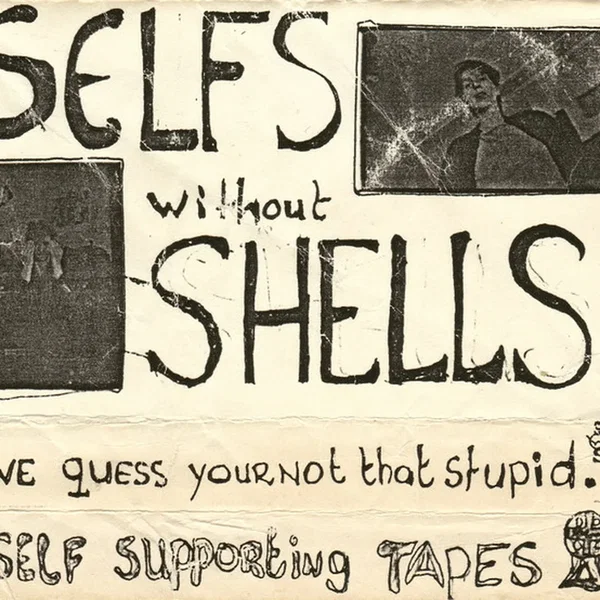 SELFS
without
SHELLS
WE guess YOURNOT that stupid.
SELF supporting TAPES